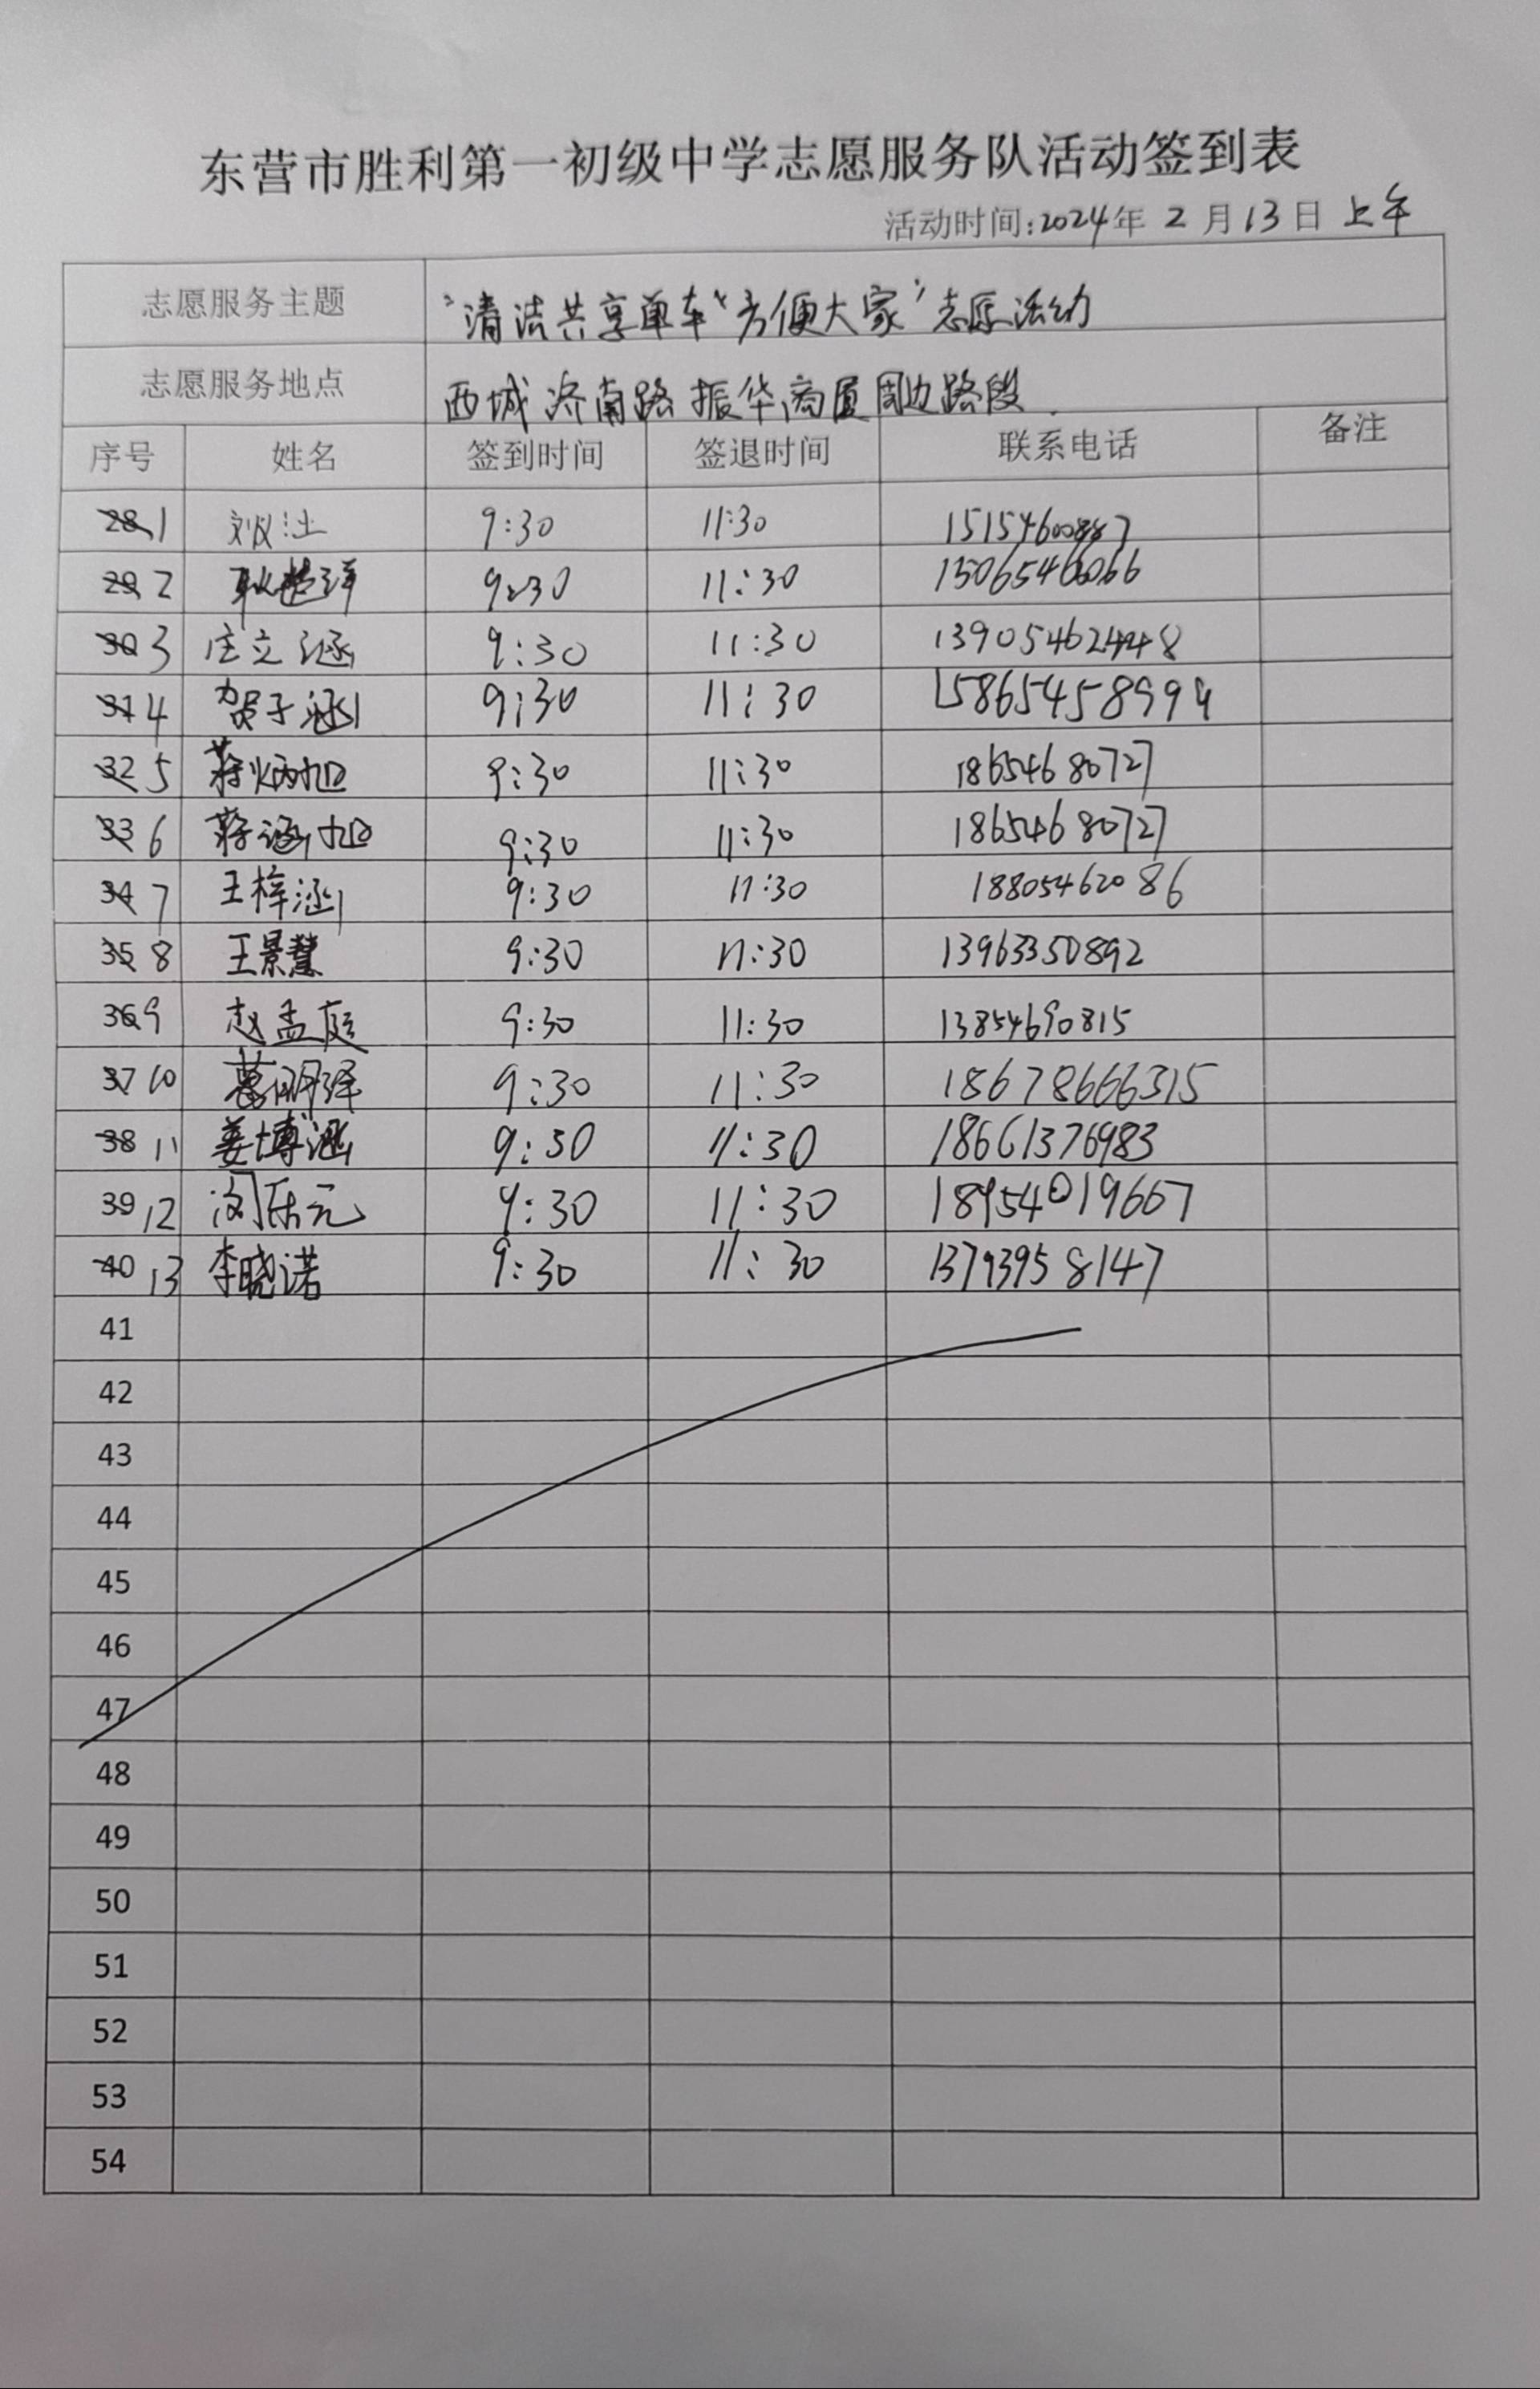 东营市胜利第一初级中学志愿服务队活动签到表
活动时间:2024年 2 月 13日 上午
志愿服务主题 "清洁共享单车"方便大家"志愿活动
志愿服务地点 西城济南路振华商厦周边路段.
序号 姓名 签到时间 签退时间 联系电话 备注
28 1 9:30 11:30 15154600887
29 2 耿楚洋 9:30 11:30 15065460066
30 3 庄立涵 9:30 11:30 13905462448
31 4 贺子涵 9:30 11:30 15865458999
32 5 蒋炳旭 9:30 11:30 18654680727
33 6 蒋涵旭 9:30 11:30 18654680727
34 7 王梓涵 9:30 11:30 18805462086
35 8 王景慧 9:30 11:30 13963350892
36 9 赵孟庭 9:30 11:30 13854690815
37 10 葛明泽 9:30 11:30 18678666315
38 11 姜博涵 9:30 11:30 18661376983
39 12 闵乐元 9:30 11:30 18954019667
40 13 李晓诺 9:30 11:30 13793958147
41
42
43
44
45
46
47
48
49
50
51
52
53
54